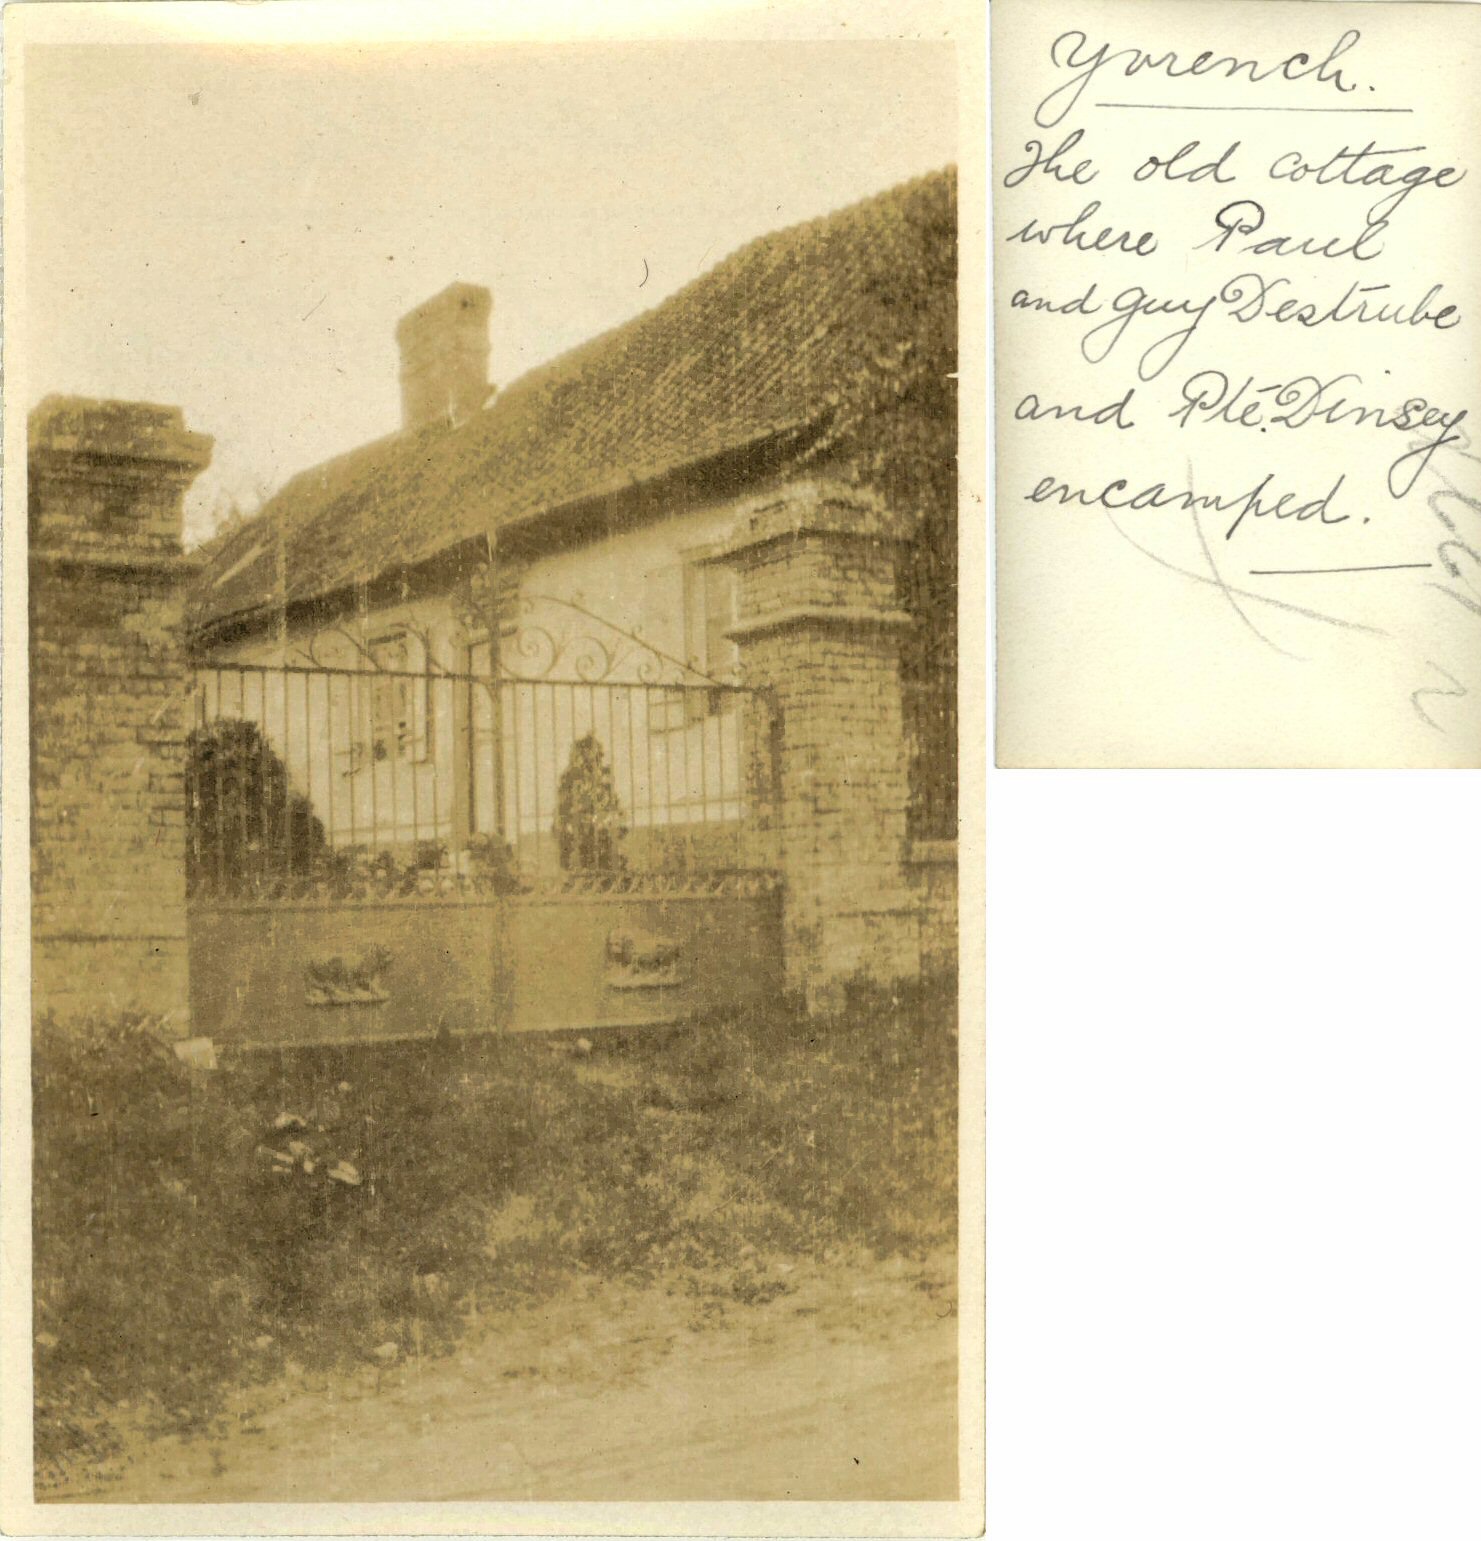 Yvrench.
The old cottage
where Paul
and Guy Destrube
and Pte. Dinsey
encamped.